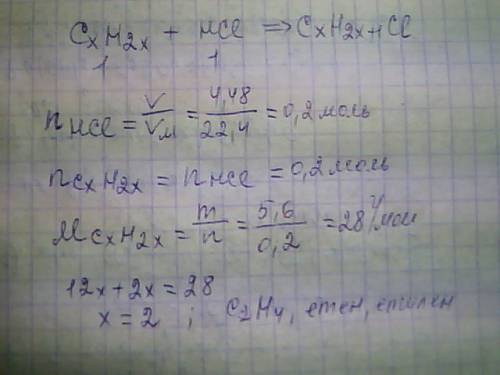 CxH2x + HCl ⟹ CxH2x+1Cl
1 1
nHCl = V/VM = 4,48/22,4 = 0,2 моль
nCxH2x = nHCl = 0,2 моль
MCxH2x = m/n = 5,6/0,2 = 28 г/моль
12x + 2x = 28
x = 2 ; C2H4, етен, етилен